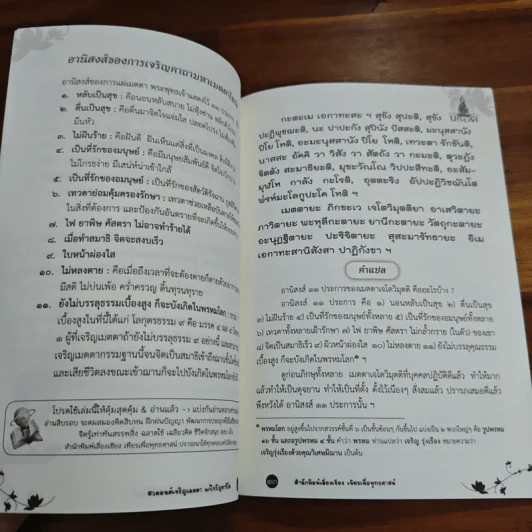 อานิสงส์ของการเจริญคาถามหาเมตตา
อานิสงส์ของการแผ่เมตตา พระพุทธเจ้าแสดงไว้ ๑๑
๑. หลับเป็นสุข : คือนอนหลับสบาย ไม่ฟุ้งซ่าน
๒. ตื่นเป็นสุข : คือตื่นมาจิตใจแจ่มใส ปลอดโปร่ง ไม่
มึนหัว
๓. ไม่ฝันร้าย : คือฝันดี ฝันเห็นแต่สิ่งที่เป็นมงคล
๔. เป็นที่รักของมนุษย์ : คือมีมนุษยสัมพันธ์ดี จิตใจ
ไม่โกรธง่าย มีเสน่ห์น่าเข้าใกล้
๕. เป็นที่รักของอมนุษย์ : เป็นที่รักของสัตว์ดิรัจฉาน
๖. เทวดาย่อมคุ้มครองรักษา : เทวดาช่วยเหลือ
ในสิ่งที่ต้องการ และป้องกันอันตรายที่จะเกิดขึ้น
๗. ไฟ ยาพิษ ศัสตรา ไม่อาจทำร้ายได้
๘. เมื่อทำสมาธิ จิตจะสงบเร็ว
๙. ใบหน้าผ่องใส
๑๐. ไม่หลงตาย : คือเมื่อถึงเวลาที่จะต้องตายก็ตายด้วย
มีสติ ไม่บ่นเพ้อ คร่ำครวญ ดิ้นทุรนทุราย
๑๑. ยังไม่บรรลุธรรมเบื้องสูง ก็จะบังเกิดในพรหมโลก :
เบื้องสูงในที่นี้ได้แก่ โลกุตรธรรม ๙ คือ มรรค ๔ ผล ๔
๑ ผู้ที่เจริญเมตตาถ้ายังไม่บรรลุธรรม ๙ อย่างนี้ และ
เจริญเมตตากรรมฐานนี้จนจิตเป็นสมาธิเข้าถึงฌาน
และเสียชีวิตลงขณะเข้าฌานก็จะไปบังเกิดในพรหมโลก
โปรดใช้เล่มนี้ให้คุ้มสุดคุ้ม & อ่านแล้ว -› แบ่งกัน
สำนักพิมพ์เลี่ยงเชียง เพียรเพื่อพุทธศาสน์
สวดมนต์เจริญเมตตา
กะตะเม เอกาทะสะ ฯ สุขัง สุปะติ, สุขัง
ปะฏิพุชฌะติ, นะ ปาปะกัง สุปินัง ปัสสะติ, มะนุสสานัง
ปิโย โหติ, อะมะนุสสานัง ปิโย โหติ, เทวะตา รักขันติ,
นาสสะ อัคคิ วา วิสัง วา สัตถัง วา กะมะติ, ตุวะฏัง
จิตตัง สะมาธิยะติ, มุขะวัณโณ วิปปะสีทะติ, อะสัม-
มุฬโห กาลัง กะโรติ, อุตตะริง อัปปะฏิวิชฌันโต
พ๎รัห๎มะโลกูปะโค โหติ ฯ
เมตตายะ ภิกขะเว เจโตวิมุตติยา อาเสวิตายะ
ภาวิตายะ พะหุลีกะตายะ ยานีกะตายะ วัตถุกะตายะ
อะนุฏฐิตายะ ปะริจิตายะ สุสะมารัทธายะ อิเม
เอกาทะสานิสังสา ปาฏิกังขา ฯ
คำแปล
อานิสงส์ ๑๑ ประการของเมตตาเจโตวิมุตติ คืออะไรบ้าง ?
อานิสงส์ ๑๑ ประการ คือ ๑) นอนหลับเป็นสุข ๒) ตื่นเป็นสุข
๓) ไม่ฝันร้าย ๔) เป็นที่รักของมนุษย์ทั้งหลาย ๕) เป็นที่รักของอมนุษย์ทั้งหลาย
๖) เทวาทั้งหลายเฝ้ารักษา ๗) ไฟ ยาพิษ ศัสตรา ไม่กล้ำกราย (ในตัว) ของเขา
๘) จิตเป็นสมาธิเร็ว ๙) ผิวหน้าผ่องใส ๑๐) ไม่หลงตาย ๑๑) ยังไม่บรรลุคุณธรรม
เบื้องสูง ก็จะบังเกิดในพรหมโลก* ฯ
ดูก่อนภิกษุทั้งหลาย เมตตาเจโตวิมุตติที่บุคคลปฏิบัติดีแล้ว ทำให้มาก
แล้วทำให้เป็นดุจยาน ทำให้เป็นที่ตั้ง ตั้งไว้เนืองๆ สั่งสมแล้ว ปรารภเสมอดีแล้ว
พึงหวังได้ อานิสงส์ ๑๑ ประการนั้น ฯ
* พรหมโลก อยู่สูงขึ้นไปจากสวรรค์ชั้นที่ ๖ เป็นชั้นซ้อนๆ กันขึ้นไป แบ่งเป็น ๒ พวกใหญ่ๆ คือ รูปพรหม
๑๖ ชั้น และอรูปพรหม ๔ ชั้น คำว่า พรหม ท่านแปลว่า เจริญ รุ่งเรือง หมายความว่า
เจริญรุ่งเรืองด้วยคุณวิเศษมีฌาน เป็นต้น
สำนักพิมพ์เลี่ยงเชียง เพียรเพื่อพุทธศาสน์